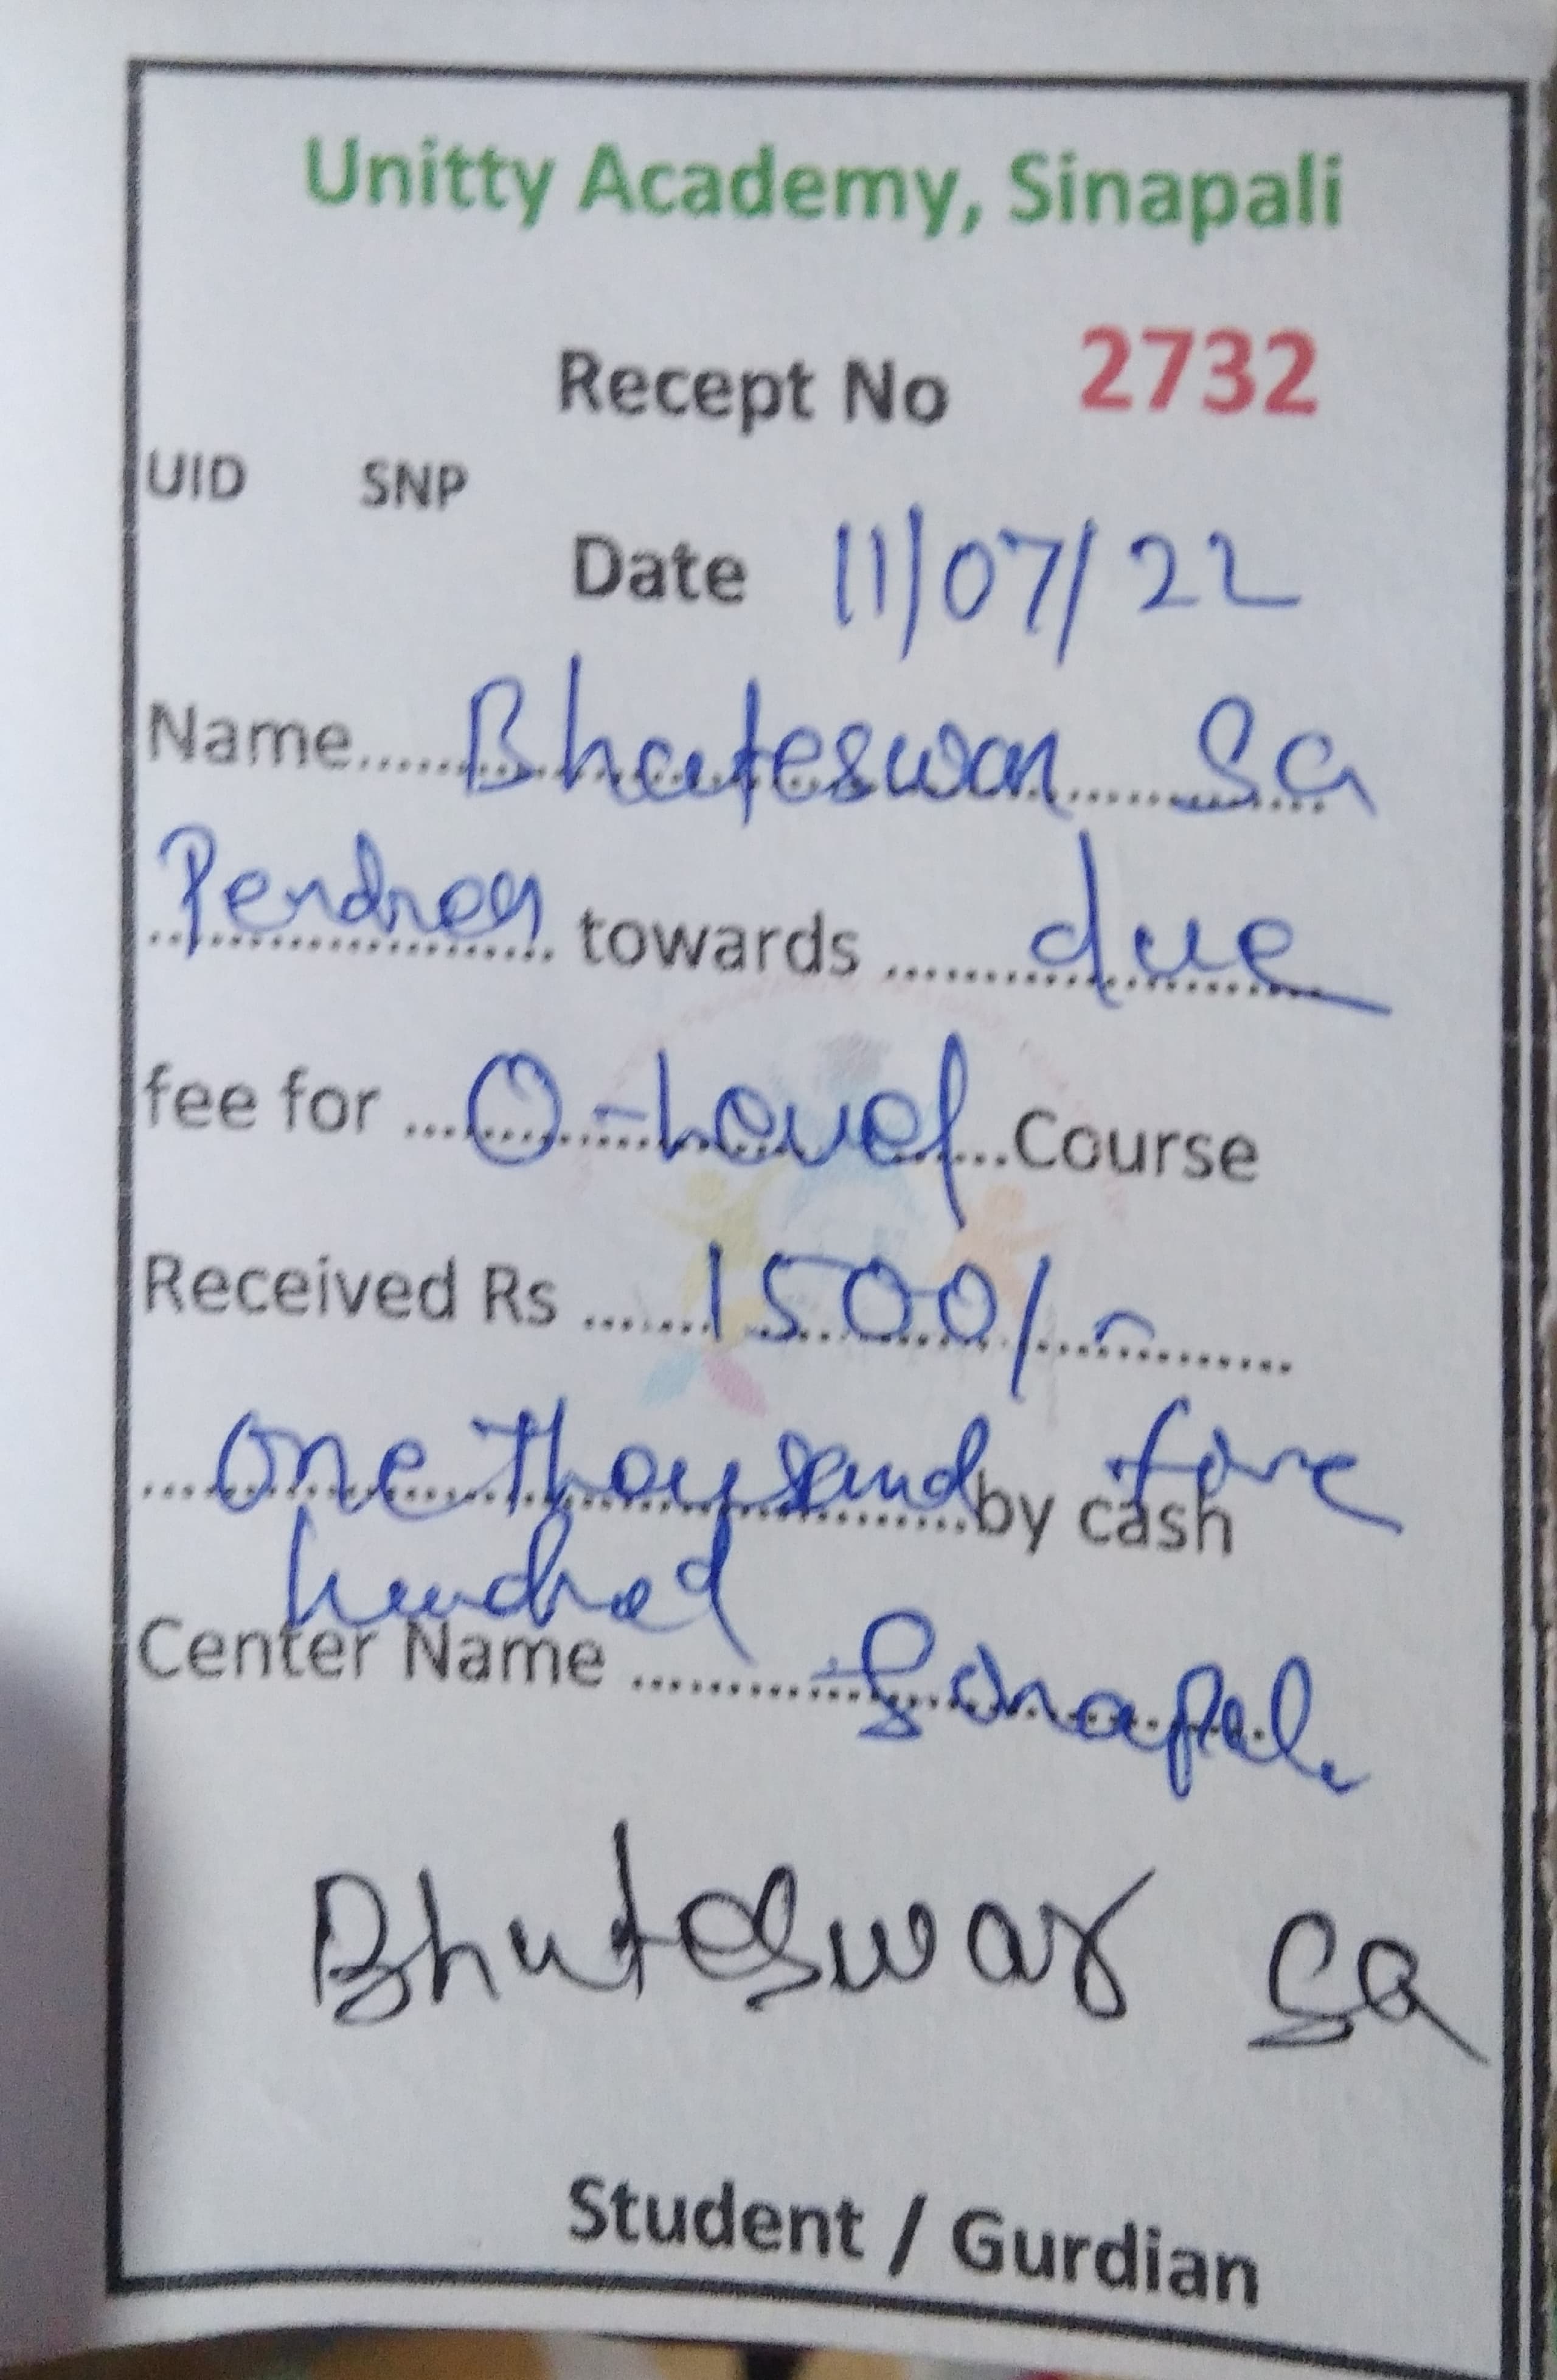 Unitty Academy, Sinapali
Recept No 2732
UID SNP
Date 11/07/22
Name..... Bhuteswar Sa
......... towards ..... due
fee for ... O-Level ...Course
Received Rs ..... 1500/-
... One Thousand by cash five
hundred
Center Name ......... Sinapali
Bhuteswar Sa
Student / Gurdian